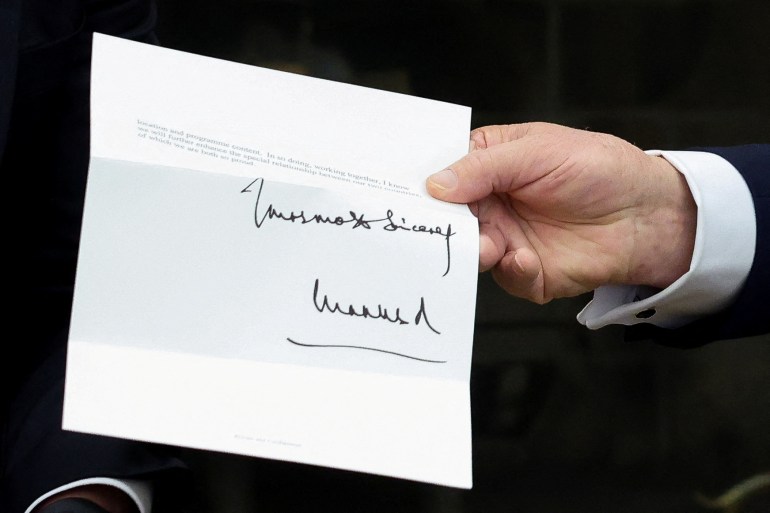 location and programme content. In so doing, working together, I know
we will further enhance the special relationship between our two countries,
of which we are both so proud.
Yours most Sincerely
Charles R